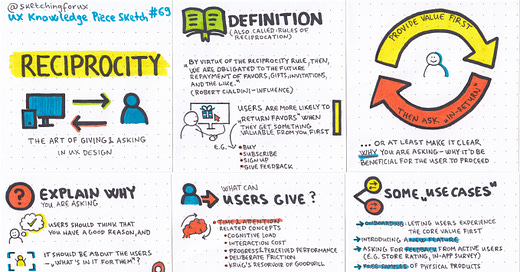 @sketchingforux
UX Knowledge Piece Sketch #69
RECIPROCITY
THE ART OF GIVING & ASKING
IN UX DESIGN
DEFINITION
(ALSO CALLED: RULES OF
RECIPROCATION)
"BY VIRTUE OF THE RECIPROCITY RULE, THEN,
WE ARE OBLIGATED TO THE FUTURE
REPAYMENT OF FAVORS, GIFTS, INVITATIONS,
AND THE LIKE."
(ROBERT CIALDINI - INFLUENCE)
USERS ARE MORE LIKELY TO
"RETURN FAVORS" WHEN
THEY GET SOMETHING
VALUABLE FROM YOU FIRST
E.G.
BUY
SUBSCRIBE
SIGN UP
GIVE FEEDBACK
PROVIDE VALUE FIRST
THEN ASK "IN-RETURN"
... OR AT LEAST MAKE IT CLEAR,
WHY YOU ARE ASKING - WHY IT'D BE
BENEFICIAL FOR THE USER TO PROCEED
EXPLAIN WHY
YOU ARE ASKING
USERS SHOULD THINK THAT
YOU HAVE A GOOD REASON, AND
IT SHOULD BE ABOUT THE USERS
- "WHAT'S IN IT FOR THEM"?
WHAT CAN
USERS GIVE?
TIME & ATTENTION
RELATED CONCEPTS
COGNITIVE LOAD
INTERACTION COST
PROGRESS, PERCEIVED PERFORMANCE
DELIBERATE FRICTION
KRUG'S RESERVOIR OF GOODWILL
SOME "USE CASES"
ONBOARDING: LETTING USERS EXPERIENCE
THE CORE VALUE FIRST
INTRODUCING A NEW FEATURE
ASKING FOR FEEDBACK FROM ACTIVE USERS
(E.G. STORE RATING, IN-APP SURVEY)
FREE SAMPLES OF PHYSICAL PRODUCTS